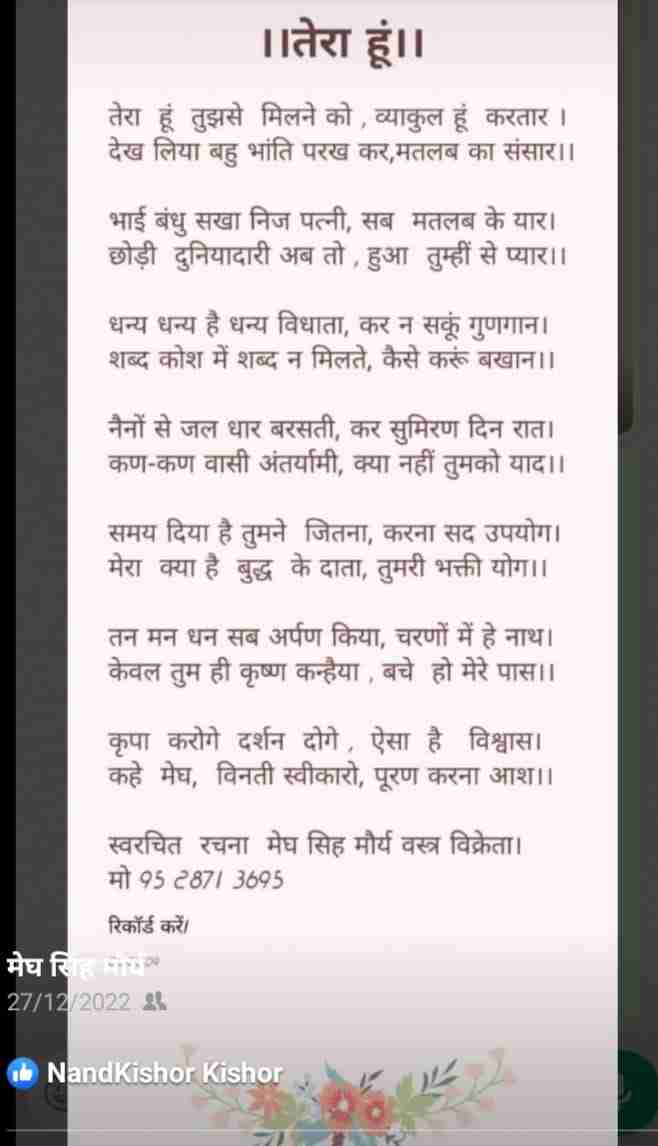 ।।तेरा हूं।।
तेरा हूं तुझसे मिलने को , व्याकुल हूं करतार ।
देख लिया बहु भांति परख कर,मतलब का संसार।।
भाई बंधु सखा निज पत्नी, सब मतलब के यार।
छोड़ी दुनियादारी अब तो , हुआ तुम्हीं से प्यार।।
धन्य धन्य है धन्य विधाता, कर न सकूं गुणगान।
शब्द कोश में शब्द न मिलते, कैसे करूं बखान।।
नैनों से जल धार बरसती, कर सुमिरण दिन रात।
कण-कण वासी अंतर्यामी, क्या नहीं तुमको याद।।
समय दिया है तुमने जितना, करना सद उपयोग।
मेरा क्या है बुद्ध के दाता, तुमरी भक्ती योग।।
तन मन धन सब अर्पण किया, चरणों में हे नाथ।
केवल तुम ही कृष्ण कन्हैया , बचे हो मेरे पास।।
कृपा करोगे दर्शन दोगे , ऐसा है विश्वास।
कहे मेघ, विनती स्वीकारो, पूरण करना आश।।
स्वरचित रचना मेघ सिह मौर्य वस्त्र विक्रेता।
मो 95 2871 3695
रिकॉर्ड करें/
मेघ सिंह मौर्य
27/12/2022
NandKishor Kishor